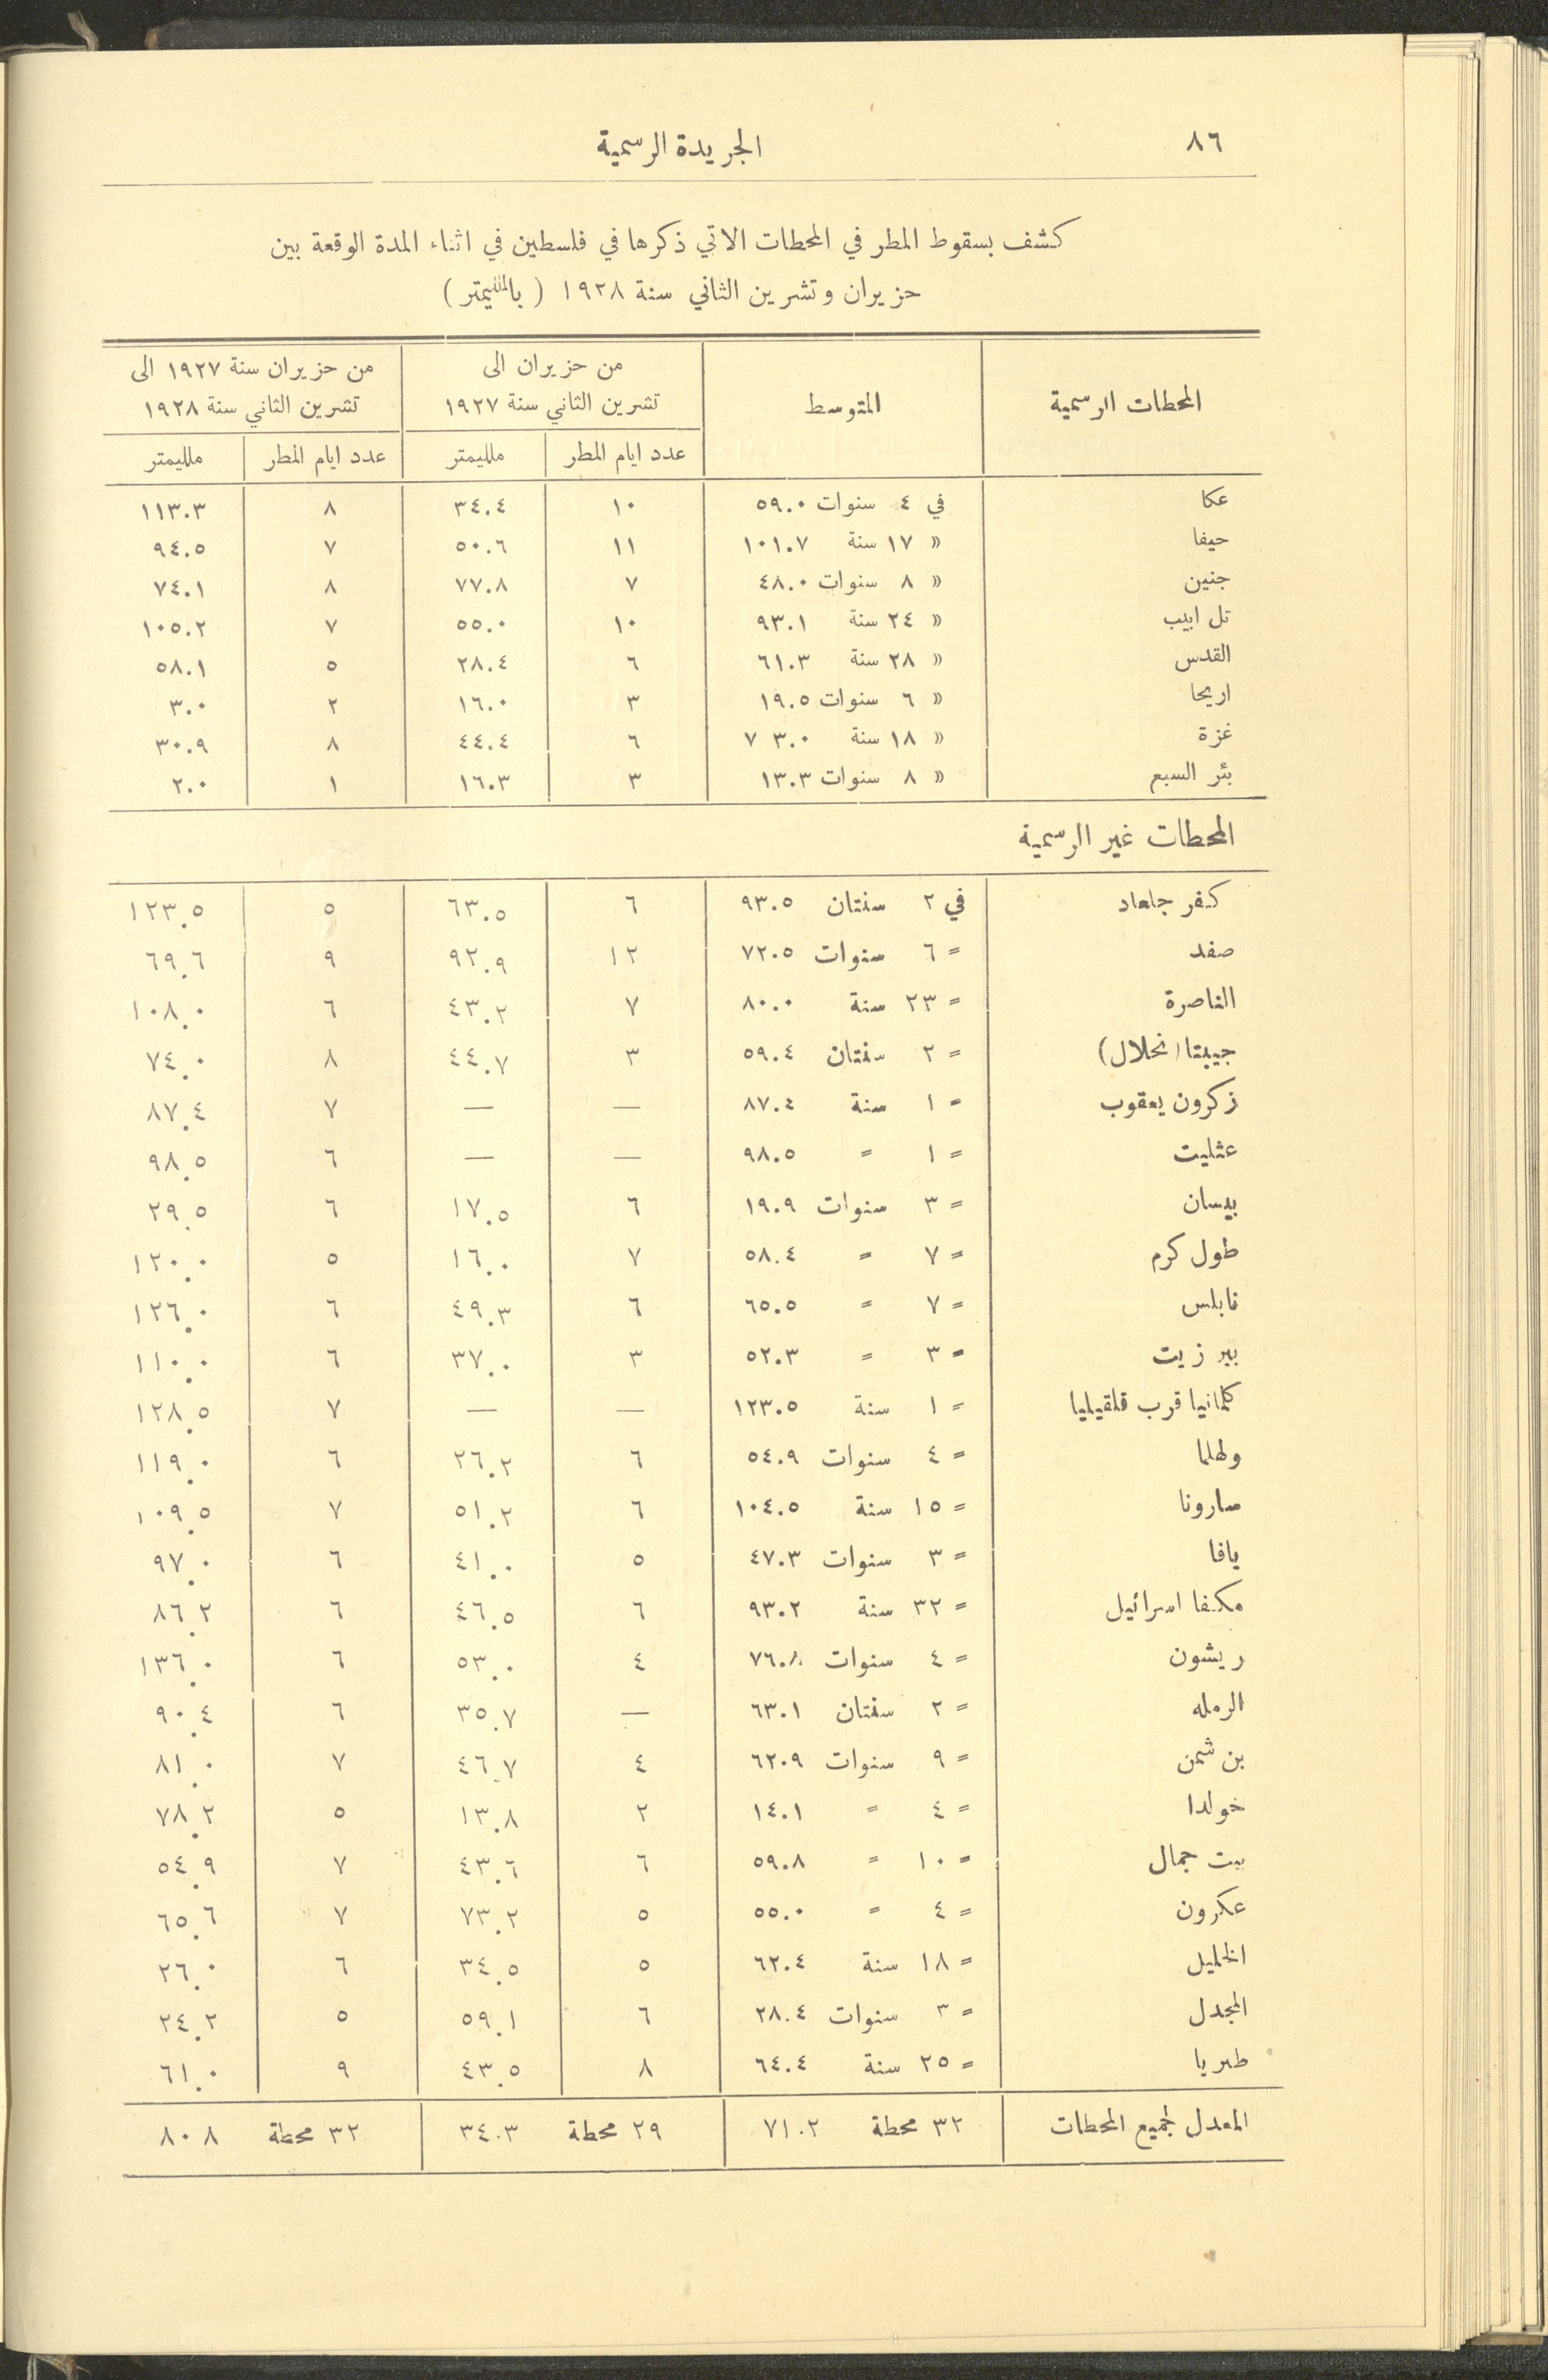 ٨٦ الجريدة الرسمية
كشف بسقوط المطر في المحطات الاتي ذكرها في فلسطين في اثناء المدة الوقعة بين
حزيران وتشرين الثاني سنة ١٩٢٨ (بالمليمتر)
المحطات الرسمية المتوسط من حزيران الى تشرين الثاني سنة ١٩٢٧ من حزيران سنة ١٩٢٧ الى تشرين الثاني سنة ١٩٢٨
عدد ايام المطر ملليمتر عدد ايام المطر ملليمتر
عكا في ٤ سنوات ٥٩.٠ ١٠ ٣٤.٤ ٨ ١١٣.٣
حيفا » ١٧ سنة ١٠١.٧ ١١ ٥٠.٦ ٧ ٩٤.٥
جنين » ٨ سنوات ٤٨.٠ ٧ ٧٧.٨ ٨ ٧٤.١
تل ابيب » ٢٤ سنة ٩٣.١ ١٠ ٥٥.٠ ٧ ١٠٥.٢
القدس » ٢٨ سنة ٦١.٣ ٦ ٢٨.٤ ٥ ٥٨.١
اريحا » ٦ سنوات ١٩.٥ ٣ ١٦.٠ ٢ ٣.٠
غزة » ١٨ سنة ٧٣.٠ ٦ ٤٤.٤ ٨ ٣٠.٩
بئر السبع » ٨ سنوات ١٣.٣ ٣ ١٦.٣ ١ ٢.٠
المحطات غير الرسمية
كفر جلعاد في ٢ سنتان ٩٣.٥ ٦ ٦٣.٥ ٥ ١٢٣.٥
صفد = ٦ سنوات ٧٢.٥ ١٢ ٩٢.٩ ٩ ٦٩.٦
الناصرة = ٢٣ سنة ٨٠.٠ ٧ ٤٣.٢ ٦ ١٠٨.٠
جيبتا (نحلال) = ٢ سنتان ٥٩.٤ ٣ ٤٤.٧ ٨ ٧٤.٠
زكرون يعقوب = ١ سنة ٨٧.٤ — — ٧ ٨٧.٤
عثليت = ١ = ٩٨.٥ — — ٦ ٩٨.٥
بيسان = ٣ سنوات ١٩.٩ ٦ ١٧.٥ ٦ ٢٩.٥
طول كرم = ٧ = ٥٨.٤ ٧ ١٦.٠ ٥ ١٢٠.٠
نابلس = ٧ = ٦٥.٥ ٦ ٤٩.٣ ٦ ١٢٦.٠
بير زيت = ٣ = ٥٢.٣ ٣ ٣٧.٠ ٦ ١١٠.٠
كلمانيا قرب قلقيليا = ١ سنة ١٢٣.٥ — — ٧ ١٢٨.٥
ولهلما = ٤ سنوات ٥٤.٩ ٦ ٢٦.٢ ٦ ١١٩.٠
سارونا = ١٥ سنة ١٠٤.٥ ٦ ٥١.٢ ٧ ١٠٩.٥
يافا = ٣ سنوات ٤٧.٣ ٥ ٤١.٠ ٦ ٩٧.٠
مكفا اسرائيل = ٣٢ سنة ٩٣.٢ ٦ ٤٦.٥ ٦ ٨٦.٢
ريشون = ٤ سنوات ٧٦.٨ ٤ ٥٣.٠ ٦ ١٣٦.٠
الرمله = ٢ سنتان ٦٣.١ — ٣٥.٧ ٦ ٩٠.٤
بن شمن = ٩ سنوات ٦٢.٩ ٤ ٤٦.٧ ٧ ٨١.٠
خولدا = ٤ = ١٤.١ ٢ ١٣.٨ ٥ ٧٨.٢
بيت جمال = ١٠ = ٥٩.٨ ٦ ٤٣.٦ ٧ ٥٤.٩
عكرون = ٤ = ٥٥.٠ ٥ ٧٣.٢ ٧ ٦٥.٦
الخليل = ١٨ سنة ٦٢.٤ ٥ ٣٤.٥ ٦ ٢٦.٠
المجدل = ٣ سنوات ٢٨.٤ ٦ ٥٩.١ ٥ ٢٤.٢
طبريا = ٢٥ سنة ٦٤.٤ ٨ ٤٣.٥ ٩ ٦١.٠
المعدل لجميع المحطات ٣٢ محطة ٧١.٢ ٢٩ محطة ٣٤.٣ ٣٢ محطة ٨٠.٨